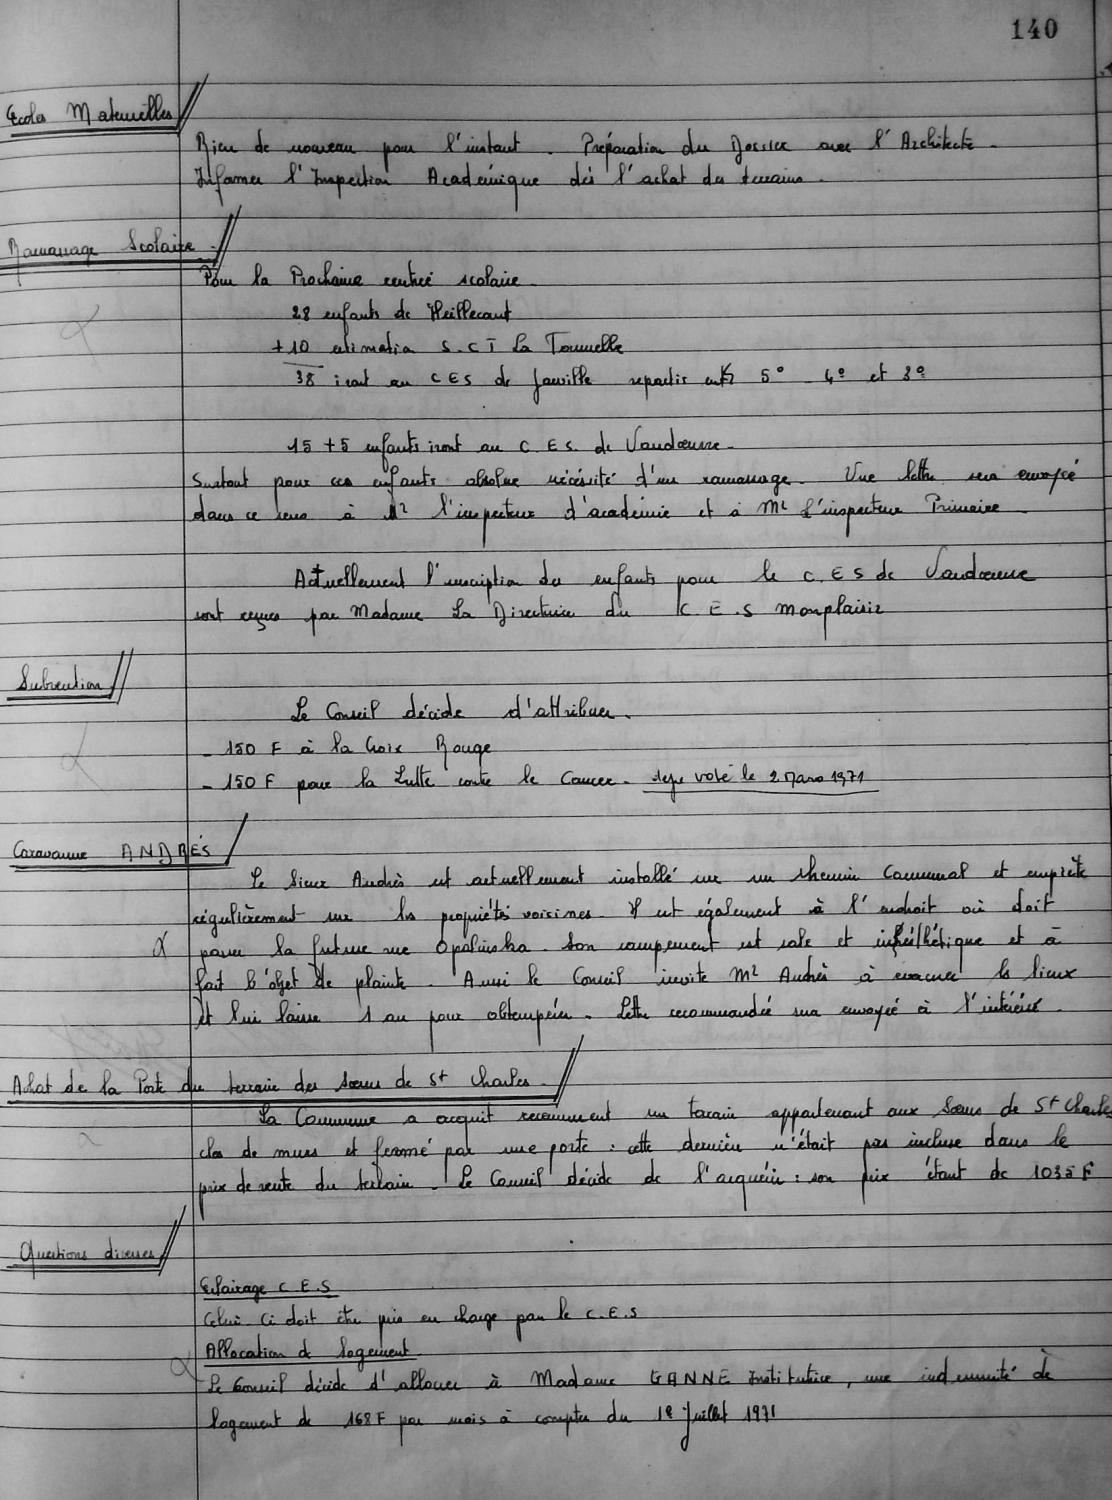 140
Ecoles Maternelles
Rien de nouveau pour l'instant. Préparation du Dossier avec l'Architecte.
Informer l'Inspection Académique dès l'achat des terrains.
Ramassage Scolaire.
Pour la Prochaine rentrée scolaire.
28 enfants de Heillecourt
+10 estimation S.C.I La Tournelle
38 iront au CES de Jarville repartis entre 5° - 4° et 3°
15 + 5 enfants iront au C.E.S. de Vandœuvre.
Surtout pour ces enfants absolue nécéssité d'un ramassage. Une lettre sera envoyée
dans ce sens à Mr l'inspecteur d'académie et à Mr l'inspecteur Primaire.
Actuellement l'inscription des enfants pour le C.E.S de Vandœuvre
sont reçues par Madame La Directrice du C.E.S Monplaisir
Subvention
Le Conseil décide d'attribuer.
- 150 F à la Croix Rouge
- 150 F pour la Lutte contre le Cancer. deja voté le 2 Mars 1971
Caravanne ANDRÉS
Le Sieur Andrès est actuellement installé sur un chemin Communal et empiète
régulièrement sur les propriétés voisines. Il est également à l'endroit où doit
passer la future rue Opalinska. Son campement est sale et inesthétique et a
fait l'objet de plainte. Aussi le Conseil invite Mr Andrès à évacuer les lieux
et lui laisse 1 an pour obtempérer. Lettre recommandée sera envoyée à l'intéréssé.
Achat de la Porte du terrain des Sœurs de St Charles.
La Commune a acquit recemment un terrain appartenant aux Sœurs de St Charles
clos de murs et fermé par une porte : cette dernière n'était pas incluse dans le
prix de vente du terrain. Le Conseil décide de l'acquérir : son prix étant de 1035 F
Questions diverses
Eclairage C.E.S
Celui-Ci doit être pris en charge par le C.E.S
Allocation de logement
Le Conseil décide d'allouer à Madame GANNE Institutrice, une indemnité de
logement de 168 F par mois à compter du 1e Juillet 1971